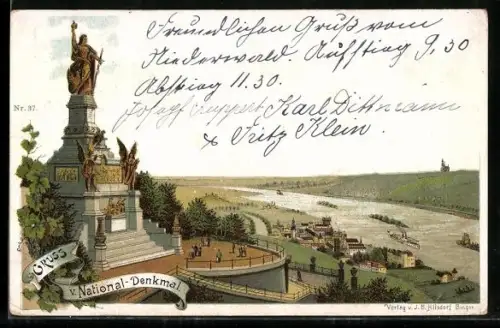 Freundlichen Gruß vom
Niederwald. Aufstieg 9.30
Abstieg 11.30.
Josef Karl Dittmann
& Fritz Klein.
Nr. 37.
GRUSS
v. National-Denkmal.
Verlag v. J. B. Hilsdorf Bingen